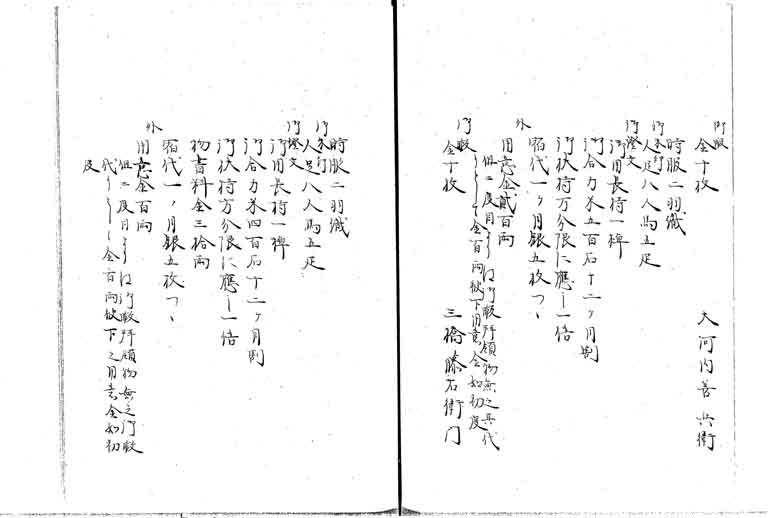 御暇
金十枚
大河内善兵衛
時服二羽織
御朱印
人足八人馬五疋
御證文
御用長持一棹
御合力米五百石十二ヶ月割
御扶持方分限に應し一倍
宿代一ヶ月銀五枚つゝ
外
用意金貳百両
但二度目より御暇拝領物無之其代
金百両被下用意金如初度
御暇
金十枚
三橋藤右衛門
時服二羽織
御朱印
人足八人馬五疋
御證文
御用長持一棹
御合力米四百石十二ヶ月割
御扶持方分限に應し一倍
物書料金三拾両
宿代一ヶ月銀五枚つゝ
外
用意金百両
但二度目より御暇拝領物無之御暇
代金百両被下之用意金如初
度